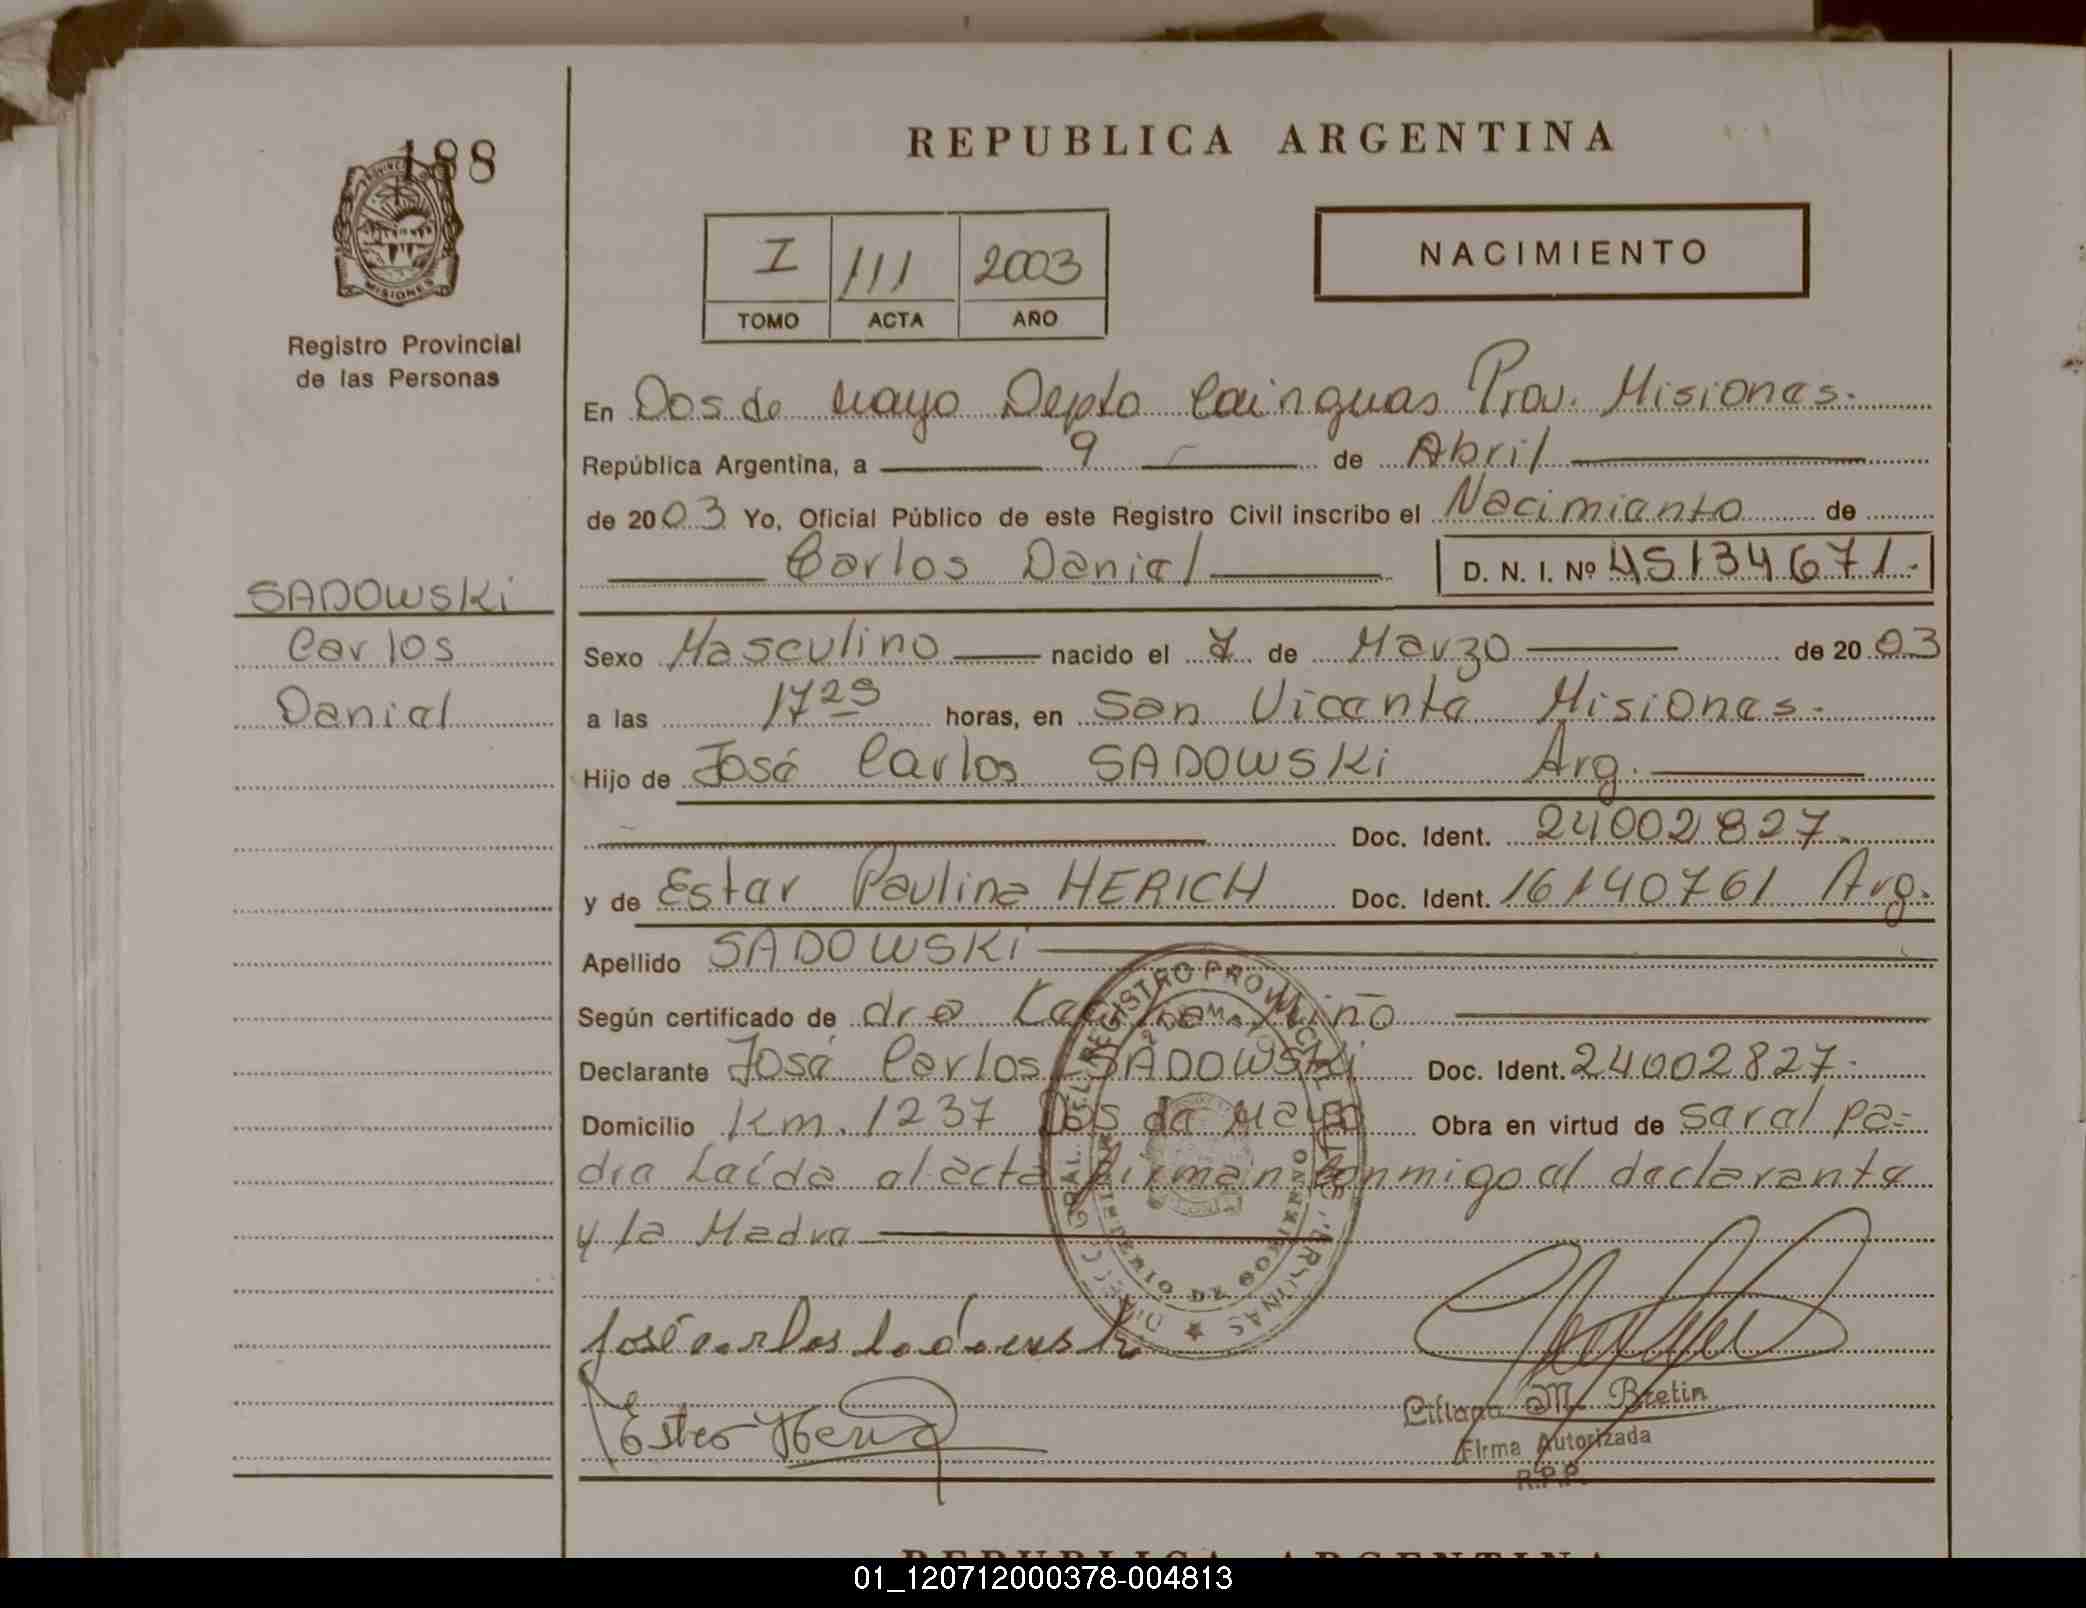 188
REPUBLICA ARGENTINA
I 111 2003
TOMO ACTA AÑO
NACIMIENTO
MISIONES
Registro Provincial
de las Personas
En Dos de Mayo Depto Cainguas Prov. Misiones.
República Argentina, a 9 de Abril
de 2003 Yo, Oficial Público de este Registro Civil inscribo el Nacimiento de
Carlos Daniel D. N. I. Nº 45134671.
SADOWSKi
Carlos
Daniel
Sexo Masculino nacido el 7 de Marzo de 2003
a las 17 25 horas, en San Vicente Misiones.
Hijo de José Carlos SADOWSKi Arg.
Doc. Ident. 24002827.
y de Ester Paulina HERICH Doc. Ident. 16140761 Arg.
Apellido SADOWSKi
Según certificado de dra Miño
Declarante José Carlos SADOWSKi Doc. Ident. 24002827.
Domicilio Km. 1237 Dos de Mayo Obra en virtud de ser el pa-
dre Leída el acta firman conmigo el declarante
y la Madre
José Carlos Sadowski
Ester Herich
Liliana M. Bretin
Firma Autorizada
R.P.P.
REPUBLICA ARGENTINA
01_120712000378-004813